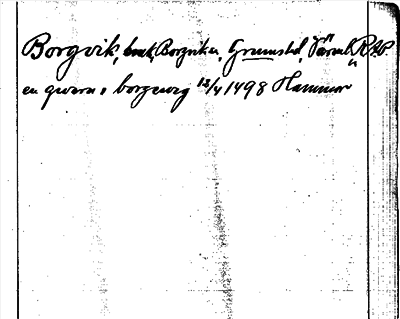 Borgvik, Borgviks s, Grums hd, Värml. RAP
en qwern i borgewig 13/4 1498 Hammar